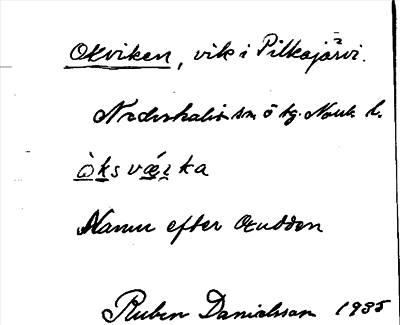 Okviken, vik i Pilkajärvi.
Nederkalix sn ö tg. Norrb. l.
òksvǽika
Namn efter Oxudden
Ruben Danielsson 1935